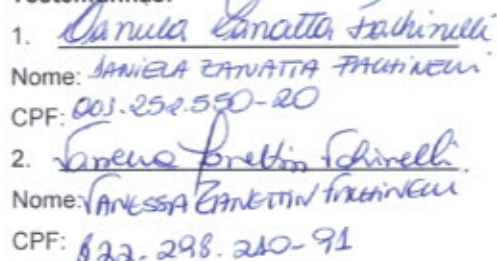 Testemunhas:
1. Daniela Zanatta Fachinelli
Nome: DANIELA ZANATTA FACHINELLI
CPF: 003.252.550-20
2. Vanessa Zanettin Fachinelli
Nome: VANESSA ZANETTIN FACHINELLI
CPF: 822.298.210-91